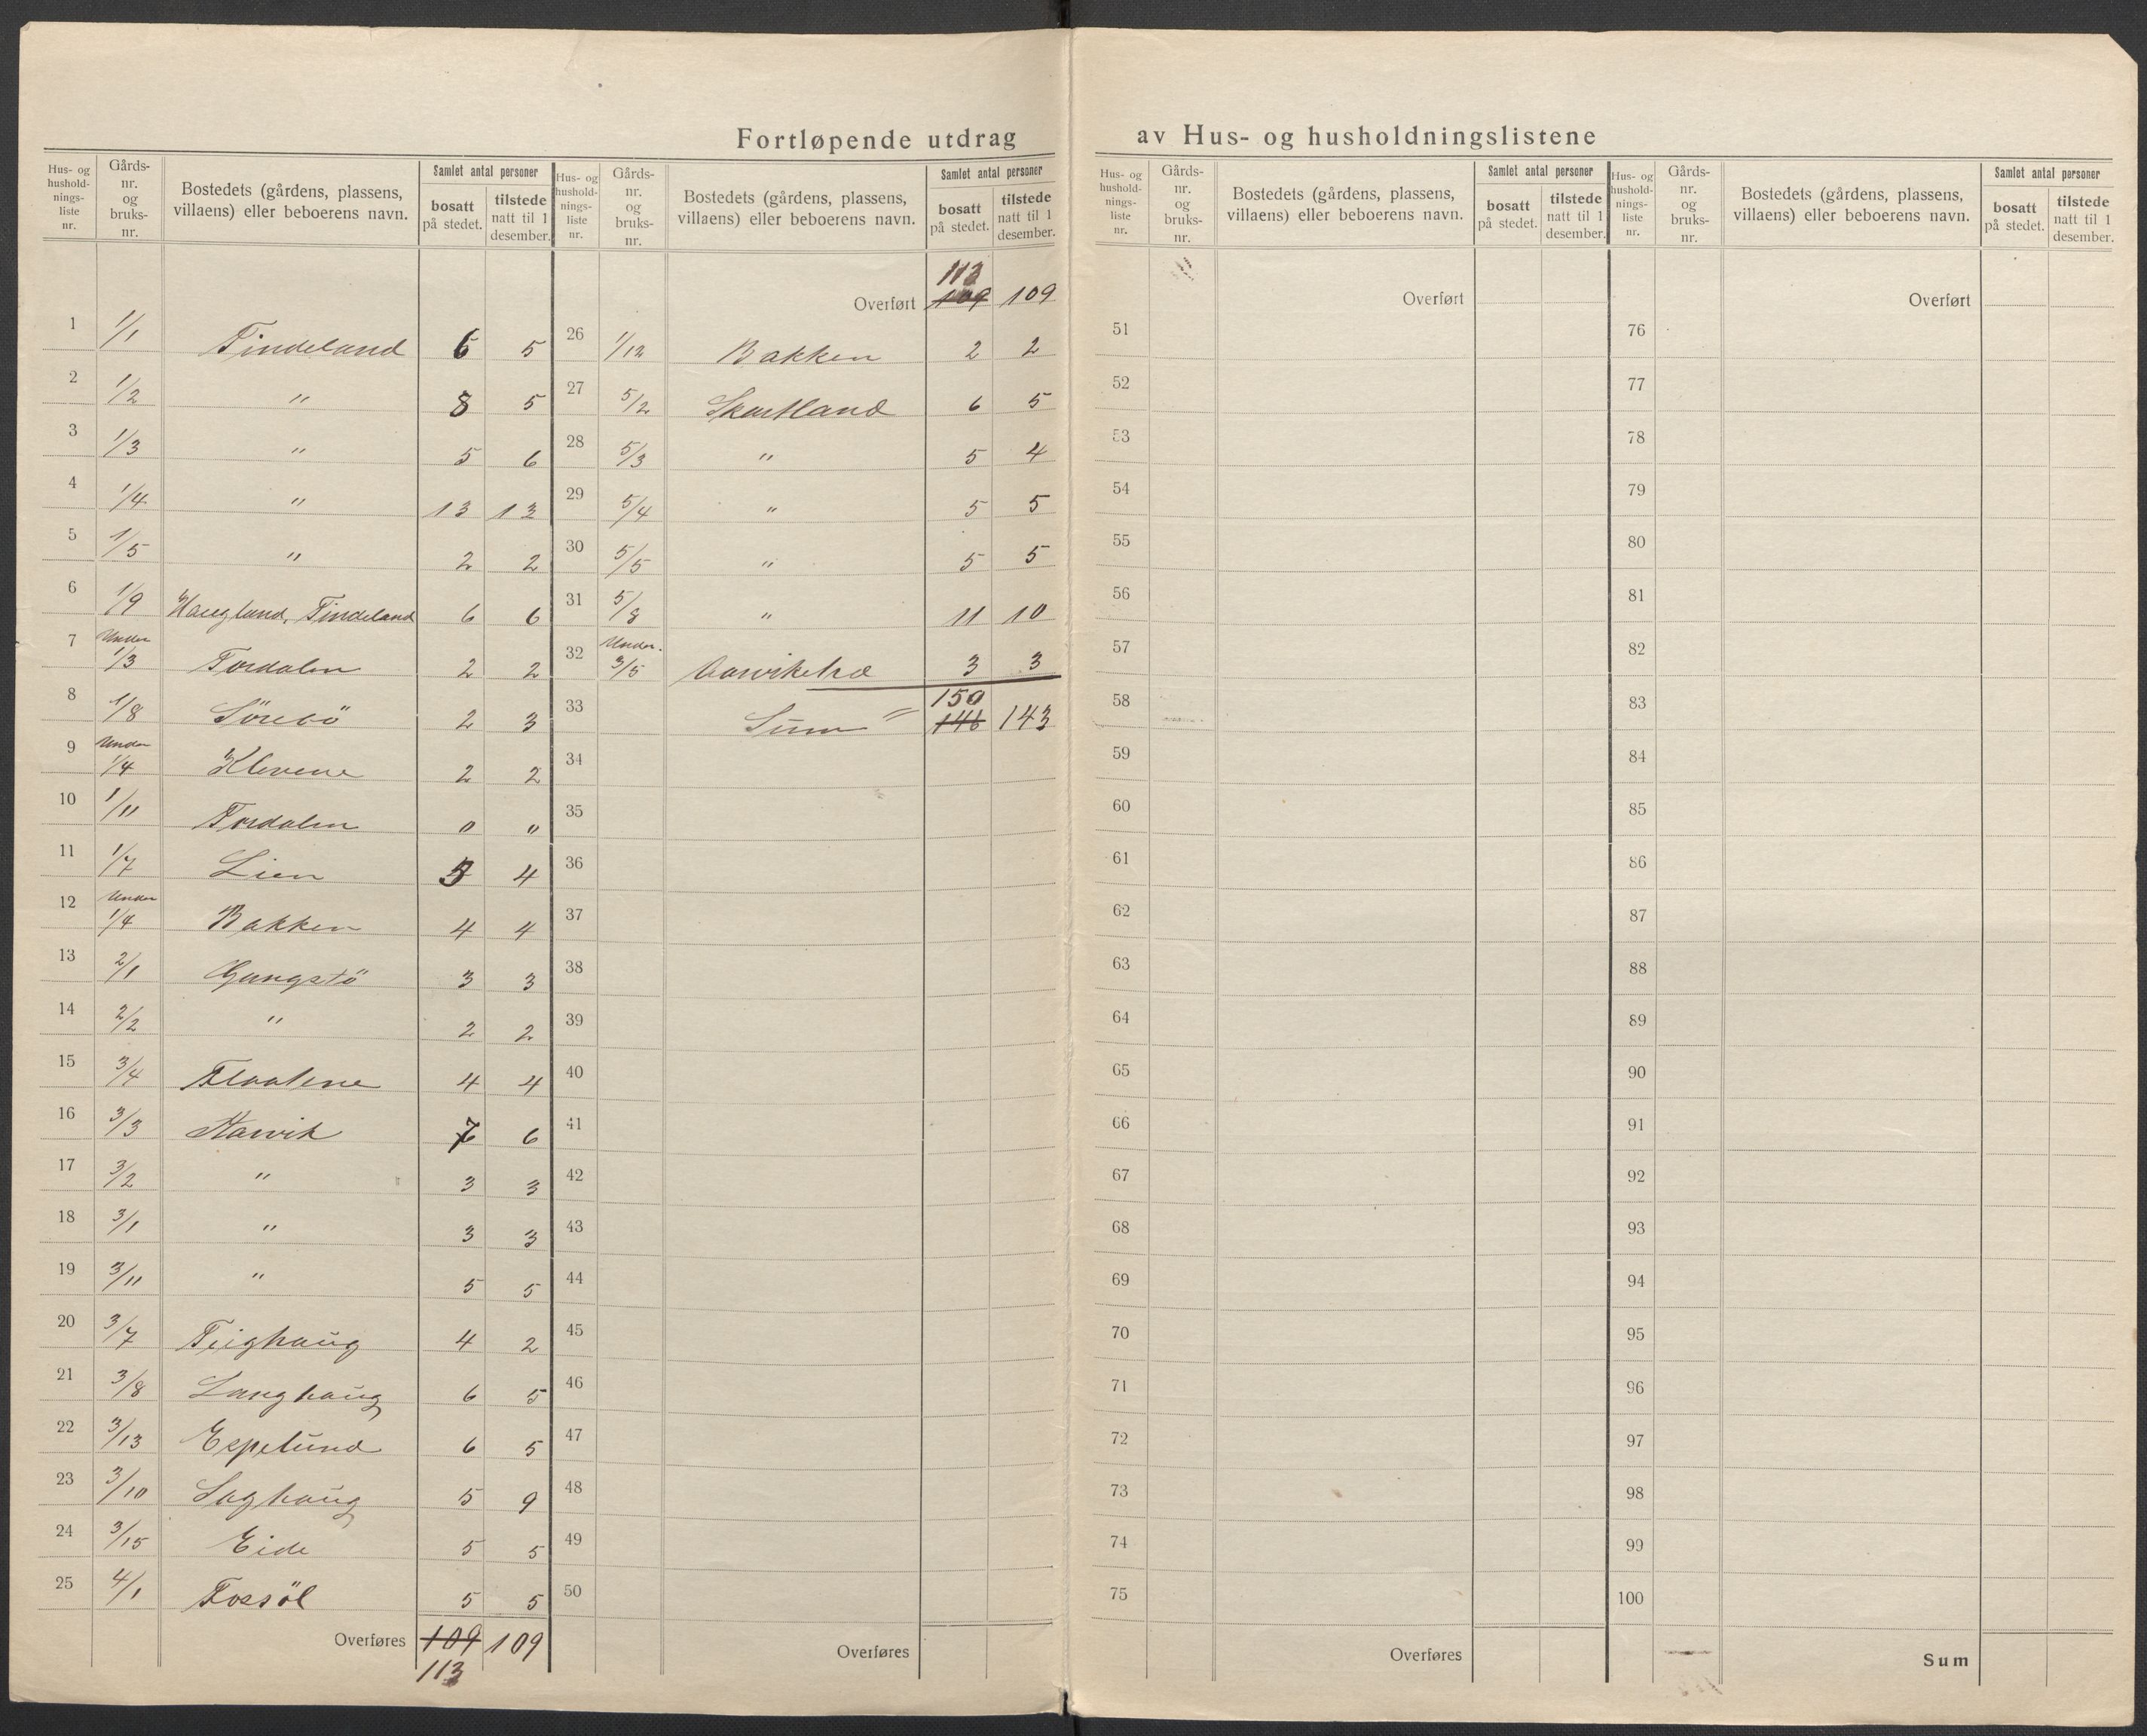 Fortløpende utdrag av Hus- og husholdningslistene
Hus- og hushold-nings-liste nr. Gårds-nr. og bruks-nr. Bostedets (gårdens, plassens, villaens) eller beboerens navn. Samlet antal personer bosatt på stedet. tilstede natt til 1 desember.
1 1/1 Tindeland 6 5
2 1/2 " 8 5
3 1/3 " 5 6
4 1/4 " 13 12
5 1/5 " 2 2
6 1/9 Haugland, Tindeland 6 6
7 Under 1/3 Tordalen 2 2
8 1/8 Sörebö 2 3
9 Under 1/4 Klevene 2 2
10 1/11 Tordalen 0 0
11 1/7 Lien 5 4
12 Under 1/4 Bakken 4 4
13 2/1 Gangstö 3 3
14 2/2 " 2 2
15 3/4 Flaatene 4 4
16 3/3 7 6
17 3/2 " 3 3
18 3/1 " 3 3
19 3/11 " 5 5
20 3/7 Teighaug 4 2
21 3/8 Langhaug 6 5
22 3/13 Espelund 6 5
23 3/10 Laghaug 5 9
24 3/15 Eide 5 5
25 4/1 Fossöl 5 5
Overføres 109 109
113
Hus- og hushold-nings-liste nr. Gårds-nr. og bruks-nr. Bostedets (gårdens, plassens, villaens) eller beboerens navn. Samlet antal personer bosatt på stedet. tilstede natt til 1 desember.
113
Overført 109 109
26 1/12 Bakken 2 2
27 5/2 Skartland 6 5
28 5/3 " 5 4
29 5/4 " 5 5
30 5/5 " 5 5
31 5/8 " 11 10
32 Under. 3/5 3 3
150
33 Sum = 146 143
34
35
36
37
38
39
40
41
42
43
44
45
46
47
48
49
50
Overføres
Hus- og hushold-nings-liste nr. Gårds-nr. og bruks-nr. Bostedets (gårdens, plassens, villaens) eller beboerens navn. Samlet antal personer bosatt på stedet. tilstede natt til 1 desember.
Overført
51
52
53
54
55
56
57
58
59
60
61
62
63
64
65
66
67
68
69
70
71
72
73
74
75
Overføres
Hus- og hushold-nings-liste nr. Gårds-nr. og bruks-nr. Bostedets (gårdens, plassens, villaens) eller beboerens navn. Samlet antal personer bosatt på stedet. tilstede natt til 1 desember.
Overført
76
77
78
79
80
81
82
83
84
85
86
87
88
89
90
91
92
93
94
95
96
97
98
99
100
Sum